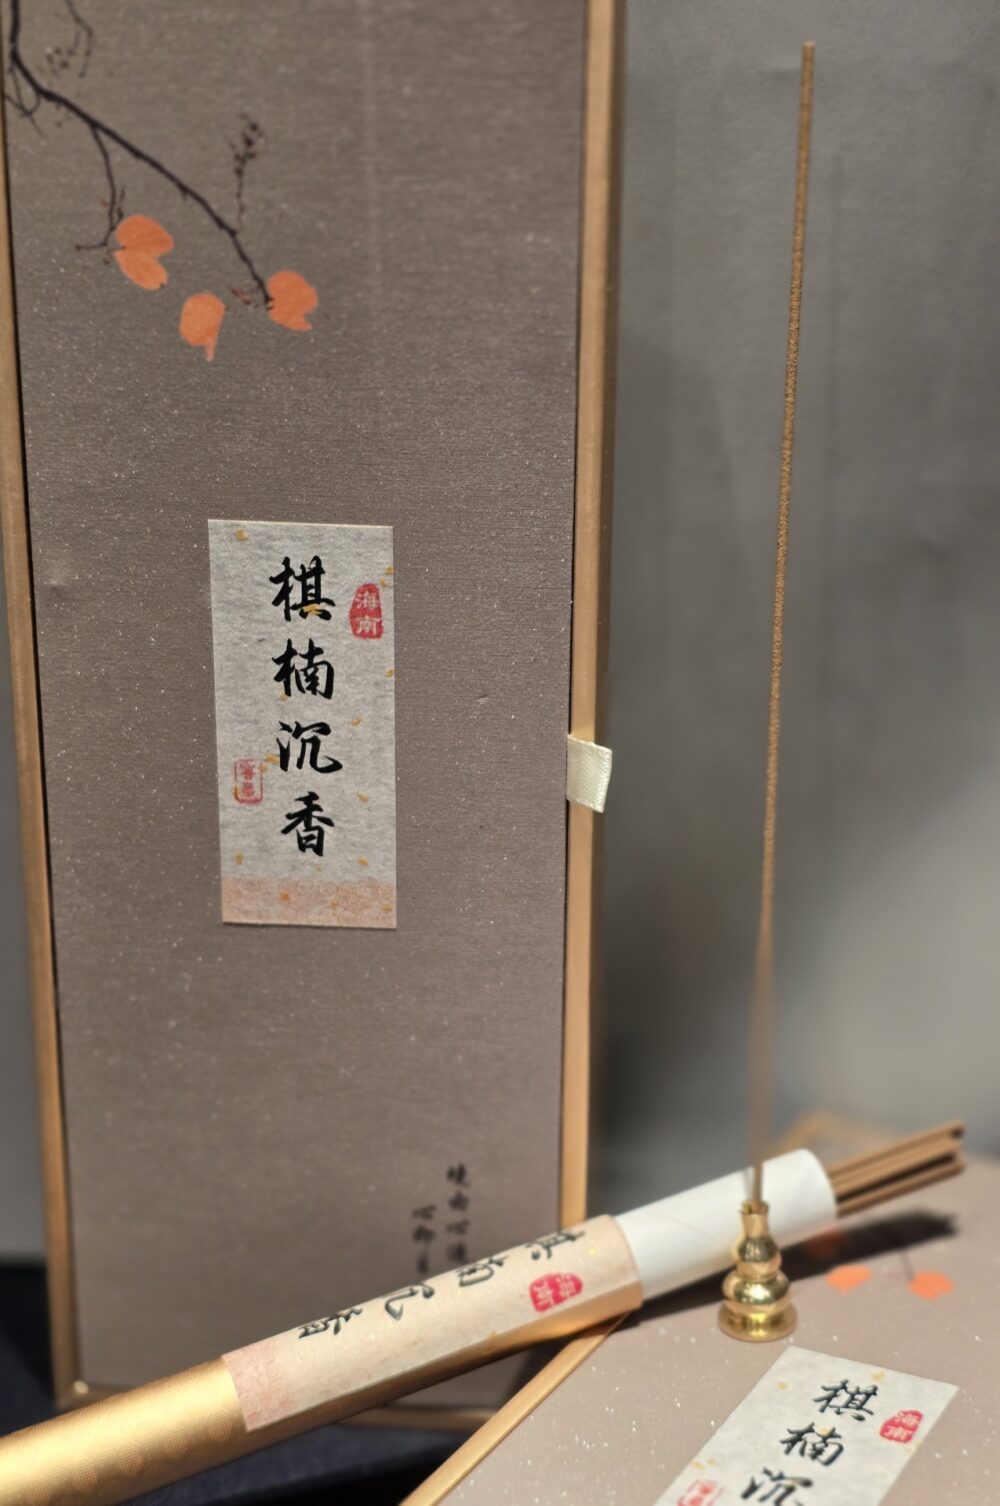 棋楠沉香
海南
境由心造
棋楠沉香
海南
棋楠沉
海南